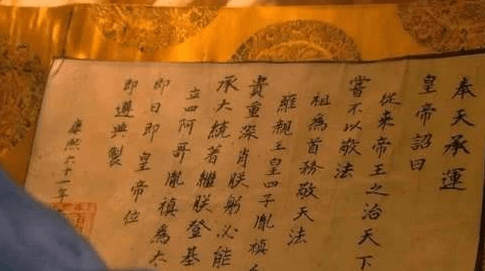 奉天承運
皇帝詔曰
從来帝王之治天下
當不以敬法
祖為首務敬天法
雍親王皇四子胤禛人
貴重深肖朕躬必能
承大統著繼朕登基
立四阿哥胤禛為太
即日即皇帝位
即遵典製
康熙六十一年